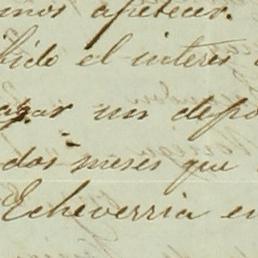 mos apetecer.
bido el interes
agar un depo
dos meses que
Echeverria en